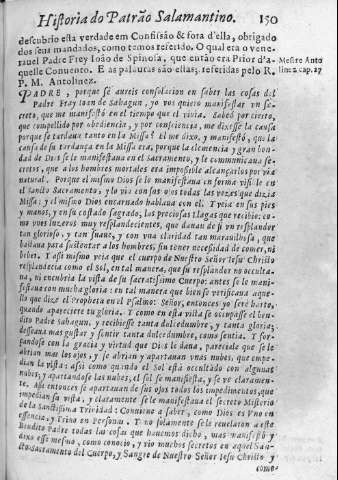 Historia do Patrão Salamantino. 150
descubrio esta verdade em Confisão & fora d'ella, obrigado
dos seus mandados, como temos referido. O qual era o vene-
rauel Padre Frey Ioão de Spinosa, que então era Prior d'a-
quelle Conuento. E as palauras são ellas; referidas pelo R.
P. M. Antolinez.
Mestre Anto
linez cap. 27
PADRE, porque sé aureis consolacion en saber las cosas del
Padre Frey Iuan de Sahagun, yo vos quiero manifestar vn se-
creto, que me manifestò en el tiempo que el viuia. Sabed por cierto,
que compellido por obediencia, y por consciencia, me dixesse la causa
porque se tardaua tanto en la Missa: el me dixo, y manifestò, que la
causa de su tardança en la Missa era, porque la clemencia y gran bon-
dad de Dios se le manifestaua en el Sacramento, y le communicaua se-
cretos, que a los hombres mortales era impossible alcançarlos por via
natural. Porque el mismo Dios se le manifestaua en forma visible en
el sancto Sacramento, y lo via con sus ojos todas las vezes que dizia
Missa; y el mismo Dios encarnado hablaua con el. Y veia en sus pies
y manos, y en su costado sagrado, las preciosas llagas que recibio: co-
mo vnos luzeros muy resplandecientes, que dauan de si vn resplandor
tan glorioso, y tan suaue, y con vna claridad tan marauillosa, que
bastaua para sustentar a los hombres, sin tener necessidad de comer, ni
beber. Y assi mismo veia que el cuerpo de Nuestro Señor Iesu Christo
resplandecia como el Sol, en tal manera, que su resplandor no oculta-
ua, ni encubria la vista de su sacratissimo Cuerpo: antes se le mani-
festaua con mucha gloria: en tal manera que bien se verificaua aque-
llo que dize el Propheta en el Psalmo: Señor, entonces yo seré harto,
quando apareciere tu gloria. Y como en esta vista se occupasse el ben-
dito Padre Sahagun, y recibiesse tanta dulcedumbre, y tanta gloria;
desseaua mas gustar y sentir tanta dulcedumbre, como sentia. Y for-
çandose con la gracia y virtud que Dios le daua, pareciale que se le
abrian mas los ojos, y se abrian y apartauan vnas nubes, que impe-
dian la vista: assi como quando el Sol està occultado con algunas
nubes, y apartandose las nubes, el sol se manifiesta, y se ve claramen-
te. Assi entonces se apartauan de sus ojos todos los impedimentos, que
impedian su vista, y claramente se le manifestaua el secreto Misterio
de la Sanctissima Trividad: Conuiene a saber, como Dios es Vno en
essencia, y Trino en Personas. Y no solamente se le reuelaron a este
Bendito Padre todas las cosas que hauemos dicho, mas manifestò y
dixo esse mesmo, como conocio, y vio muchos secretos en aquel San-
cto Sacramento del Cuerpo, y Sangre de Nuestro Señor Iesu Christo y
como-